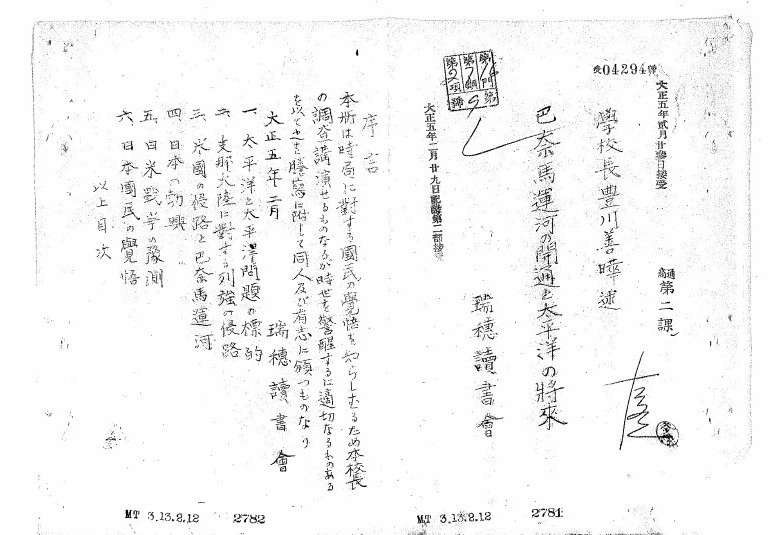 受04294號
大正五年貳月廿參日接受
高通
第二課
學校長豊川善曄述
巴奈馬運河の開通と太平洋の將來
瑞穗讀書會
第 門
第7類
第2項
第9號
大正五年二月廿九日記錄第二部接受
MT 3.13.2.12 2781
序言
本册は時局に對する國民の覺悟を知らしむるため本校長
の調査講演せるものなるが時世を警醒するに適切なるものある
を以て之を謄寫に附して同人及び有志に頒つものなり
大正五年二月
瑞穗讀書會
一、太平洋と太平洋問題の標的
二、支那大陸に對する列強の侵略
三、米國の侵略と巴奈馬運河
四、日本の勃興
五、日米戰爭の豫測
六、日本國民の覺悟
以上目次
MT 3.13.2.12 2782